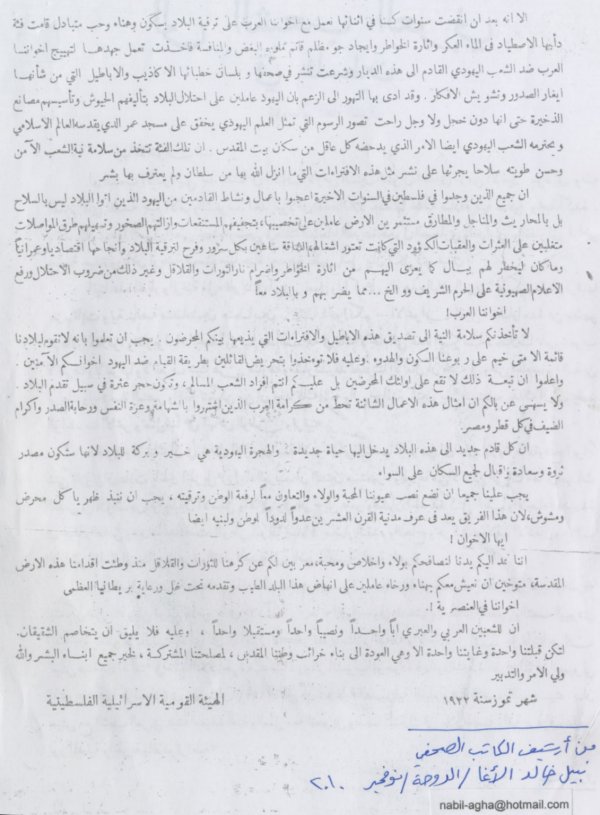 الا انه بعد ان انقضت سنوات كنا في اثنائها نعمل مع اخواننا العرب على ترقية البلاد بسكون وهناء وحب متبادل قامت فئة
دأبها الاصطياد في الماء العكر واثارة الخواطر وايجاد جو مظلم قاتم تملؤه البغض والمنافسة فاخذت تعمل جهدها لتهييج اخواننا
العرب ضد الشعب اليهودي القادم الى هذه الديار وشرعت تنشر في صحفها وبلسان خطبائها الاكاذيب والاباطيل التي من شأنها
ايغار الصدور وتشويش الافكار . وقد ادى بها التهور الى الزعم بان اليهود عاملين على احتلال البلاد بتأليفهم الجيوش وتأسيسهم مصانع
الذخيرة حتى انها دون خجل ولا وجل راحت تصور الرسوم التي تمثل العلم اليهودي يخفق على مسجد عمر الذي يقدسه العالم الاسلامي
ويحترمه الشعب اليهودي ايضا الامر الذي يدحضه كل عاقل من سكان بيت المقدس . ان تلك الفئة تتخذ من سلامة نية الشعب الآمن
وحسن طويته سلاحا يجرئها على نشر مثل هذه الافتراءات التي ما انزل الله بها من سلطان ولم يعترف بها بشر
ان جميع الذين وجدوا في فلسطين في السنوات الاخيرة اعجبوا باعمال ونشاط القادمين من اليهود الذين اتوا البلاد ليس بالسلاح
بل بالمحاريث والمناجل والمطارق مستثمرين الارض عاملين على تخصيبها، بتجفيفهم المستنقعات وازالتهم الصخور وتسهيلهم طرق المواصلات
متغلبين على العثرات والعقبات الكؤود التي كانت تعتور اشغالهم الشاقة ساعين بكل سرور وفرح لترقية البلاد وانجاحها اقتصاديا وعمرانياً
وما كان ليخطر لهم ببال كما يعزى اليهم من اثارة الخواطر واضرام نار الثورات والقلاقل وغير ذلك من ضروب الاحتلال ورفع
الاعلام الصهيونية على الحرم الشريف ووالخ ... مما يضر بهم وبالبلاد معاً
اخواننا العرب!
لا تأخذنكم سلامة النية الى تصديق هذه الاباطيل والافتراءات التي يذيعها بينكم المحرضون . يجب ان تعلموا بانه لا تقوم لبلادنا
قائمة الا متى خيم على ربوعنا السكون والهدوء . وعليه فلا تؤخذوا بتحريض القائلين بطريقة القيام ضد اليهود اخوانكم الآمنين .
واعلموا ان تبعة ذلك لا تقع على اولئك المحرضين بل عليكم انتم افراد الشعب المسالم، وتكون حجر عثرة في سبيل تقدم البلاد .
ولا يسهى عن بالكم ان امثال هذه الاعمال الشائنة تحط من كرامة العرب الذين اشتهروا بالشهامة وعزة النفس ورحابة الصدر واكرام
الضيف في كل قطر ومصر.
ان كل قادم جديد الى هذه البلاد يدخل اليها حياة جديدة . والهجرة اليهودية هي خير وبركة للبلاد لانها ستكون مصدر
ثروة وسعادة واقبال لجميع السكان على السواء .
يجب علينا جميعا ان نضع نصب عيوننا المحبة والولاء والتعاون معاً لرفعة الوطن وترقيته ، يجب ان ننبذ ظهريا كل محرض
ومشوش، لان هذا الفريق يعد في عرف مدنية القرن العشرين عدواً لدوداً للوطن ولبنيه ايضا
ايها الاخوان !
اننا نمد اليكم يدنا لنصافحكم بولاء واخلاص ومحبة، معربين لكم عن كرهنا للثورات والقلاقل منذ وطئت اقدامنا هذه الارض
المقدسة، متوخين ان نعيش معكم بهناء ورخاء عاملين على انهاض هذا البلد الطيب وتقدمه تحت ظل ورعاية بريطانيا العظمى
اخواننا في العنصرية !.
ان للشعبين العربي والعبري اباً واحداً ونصيباً واحداً ومستقبلا واحداً ، وعليه فلا يليق ان يتخاصم الشقيقان.
لتكن قبلتنا واحدة وغايتنا واحدة الا وهي العودة الى بناء خرائب وطننا المقدس ، لمصلحتنا المشتركة ، لخير جميع ابناء البشر والله
ولي الامر والتدبير
شهر تموز سنة ١٩٢٢ الهيئة القومية الاسرائيلية الفلسطينية
من أرشيف الكاتب الصحفي
نبيل خالد الأغا / الدوحة / نوفمبر ٢٠١٠
nabil-agha@hotmail.com